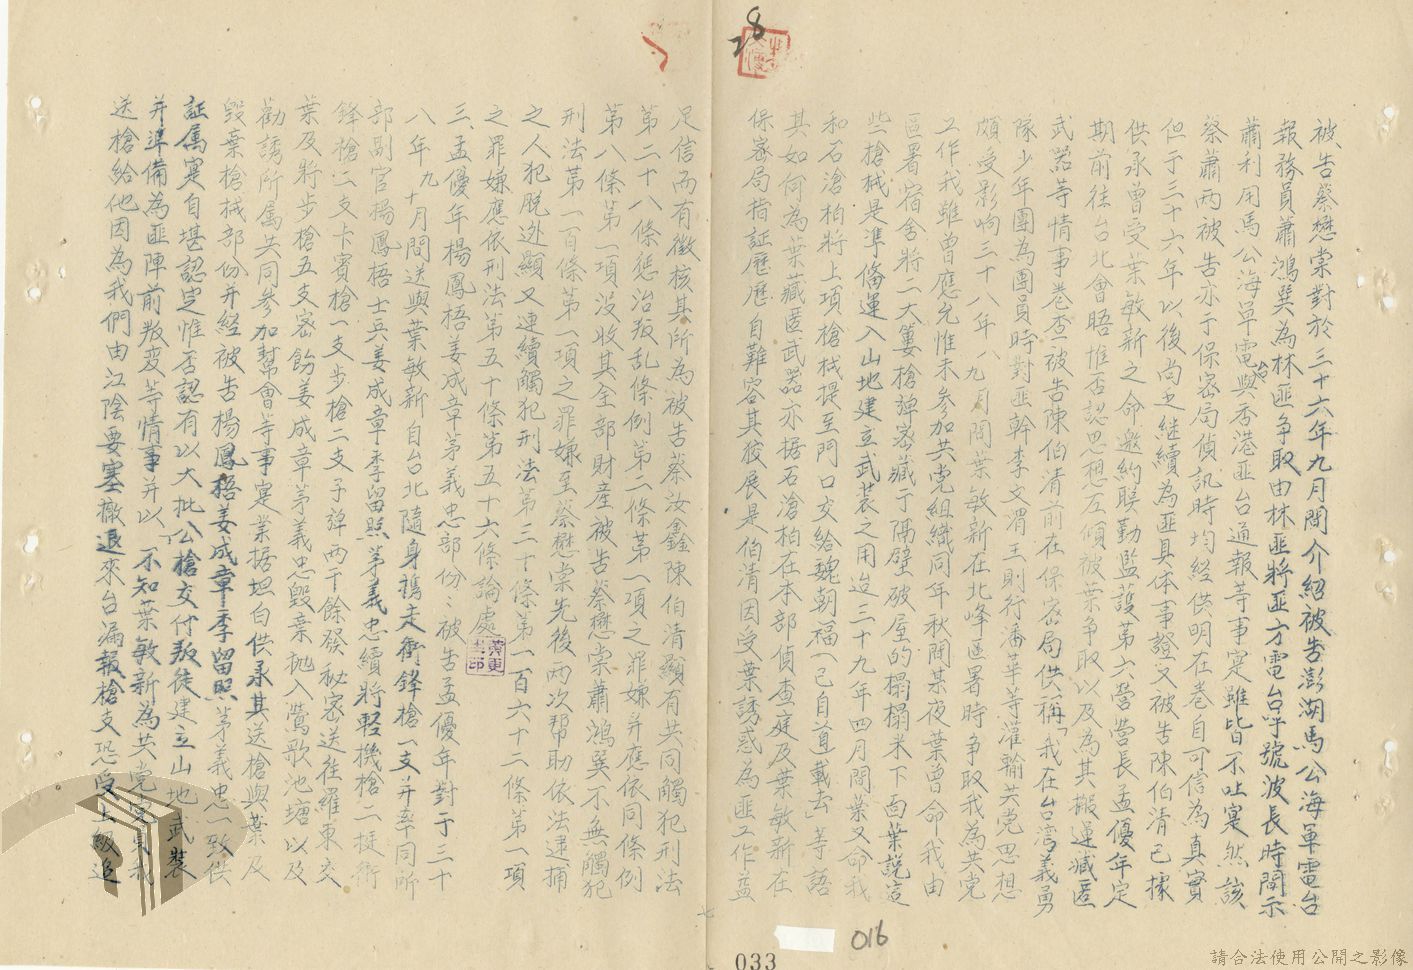 28
被告蔡懋棠對於三十六年九月間介紹被告澎湖馬公海軍電台
報務員蕭鴻巽為林匪爭取由林匪將匪方電台呼號波長時間示
蕭利用馬公海軍電台與香港匪台通報等事寔雖皆不吐寔然該
蔡蕭兩被告亦于保密局偵訊時均經供明在卷自可信為真實
但于三十六年以後尚乏繼續為匪具体事證又被告陳伯清已據
供承曾受葉敏新之命邀約聯勤監護第六營營長孟優年定
期前往台北會晤惟否認思想左傾被葉爭取以及為其搬運藏匿
武器等情事卷查被告陳伯清前在保密局供稱「我在台湾義勇
隊少年團為團員時對匪幹李文渭王則行潘華等灌輸共党思想
頗受影响三十八年八九月間葉敏新在北峰區署時爭取我為共党
工作我雖曾應允惟未參加共党組織同年秋間某夜葉曾命我由
區署宿舍將一大簍槍彈密藏于隔壁破屋的榻榻米下面葉說這
些槍械是準俻運入山地建立武装之用迨三十九年四月間葉又命我
和石滄柏將上項槍械提至門口交給魏朝福一己自道載去」等語
其如何為葉藏匿武器亦据石滄柏在本部偵查庭及葉敏新在
保密局指証歷歷自難容其狡展是伯清因受葉誘惑為匪工作益
足信而有徵核其所為被告蔡汝鑫陳伯清顯有共同觸犯刑法
第二十八條惩治叛乱條例第二條第一項之罪嫌并應依同條例
第八條第一項没收其全部財產被告蔡懋棠蕭鴻巽不無觸犯
刑法第一百條第一項之罪嫌至蔡懋棠先後兩次帮助依法逮捕
之人犯脱逃顯又連續觸犯刑法第三十條第一百六十二條第一項
之罪嫌應依刑法第五十條第五十六條論處
三、孟優年楊鳳梧姜成章茅義忠部份：被告孟優年對于三十
八年九十月間送與葉敏新自台北隨身携走衝鋒槍一支并率同所
部副官楊鳳梧士兵姜成章季留照茅義忠續將軽機槍二挺衝
鋒槍二支卡賓槍一支步槍二支子彈两千餘發秘密送往羅東交
葉及將步槍五支密飭姜成章茅義忠毀棄抛入鶯歌池塘以及
勸誘所属共同参加幫會等事寔業据坦白供承其送槍與葉及
毀棄槍械部份并經被告楊鳳梧姜成章季留照茅義忠一致供
証属寔自堪認定惟否認有以大批公槍交付叛徒建立山地武裝
并準備為匪陣前叛变等情事并以「不知葉敏新為共党党員我
送槍給他因為我們由江陰要塞撤退來台漏報槍支恐受上级追
七
016
033
請合法使用公開之影像